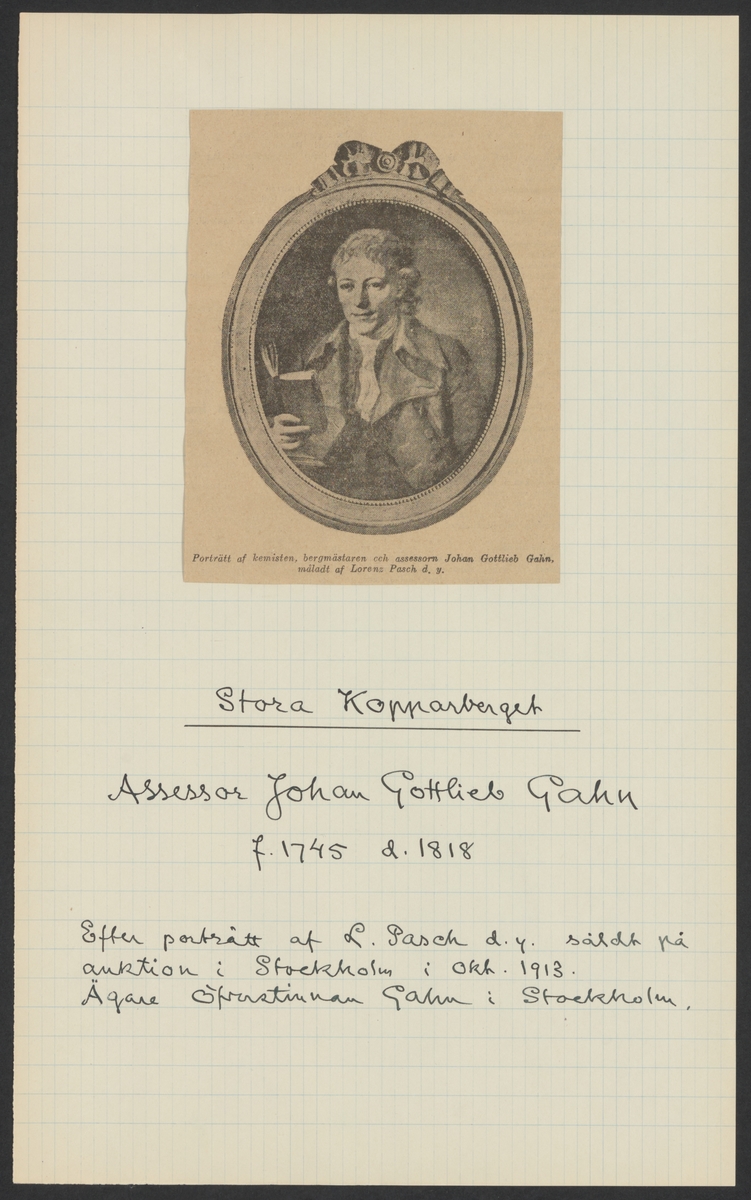 Porträtt af kemisten, bergmästaren och assessorn Johan Gottlieb Gahn,
måladt af Lorens Pasch d. y.
Stora Kopparberget
Assessor Johan Gottlieb Gahn
f. 1745 d. 1818
Efter porträtt af L. Pasch d. y. såldt på
auktion i Stockholm i Okt. 1913.
Ägare Öfverstinnan Gahn i Stockholm.